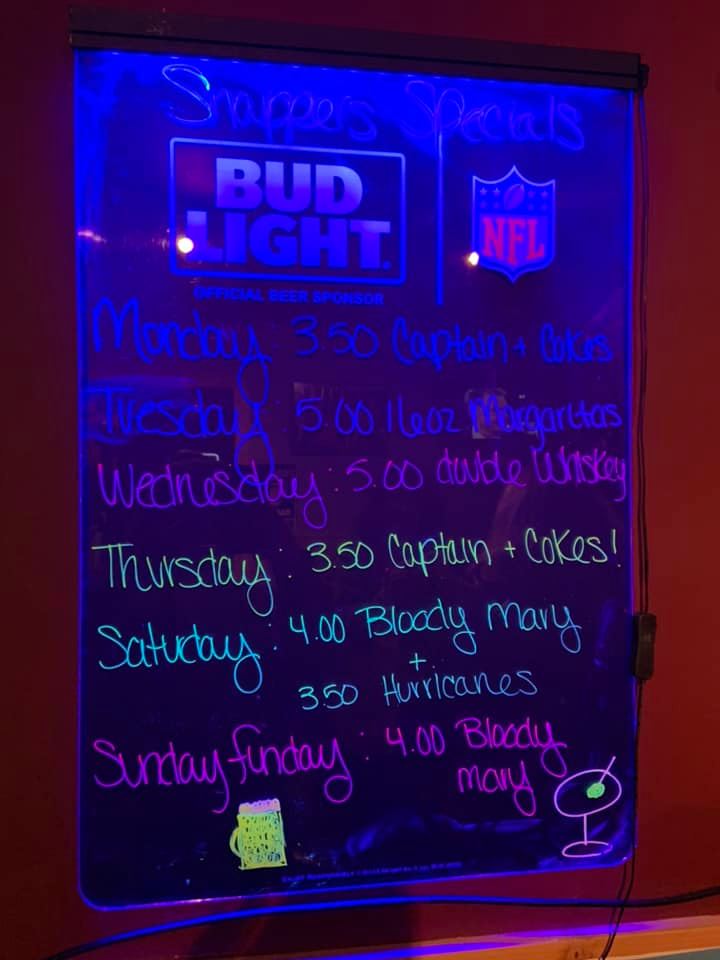 Snappers Specials
BUD
LIGHT.
NFL
OFFICIAL BEER SPONSOR
Monday: 3.50 Captain + Cokes
Tuesday: 5.00 16oz Margaritas
Wednesday: 5.00 double Whiskey
Thursday: 3.50 Captain + Cokes!
Saturday: 4.00 Bloody mary
+
3.50 Hurricanes
Sunday funday: 4.00 Bloody
mary